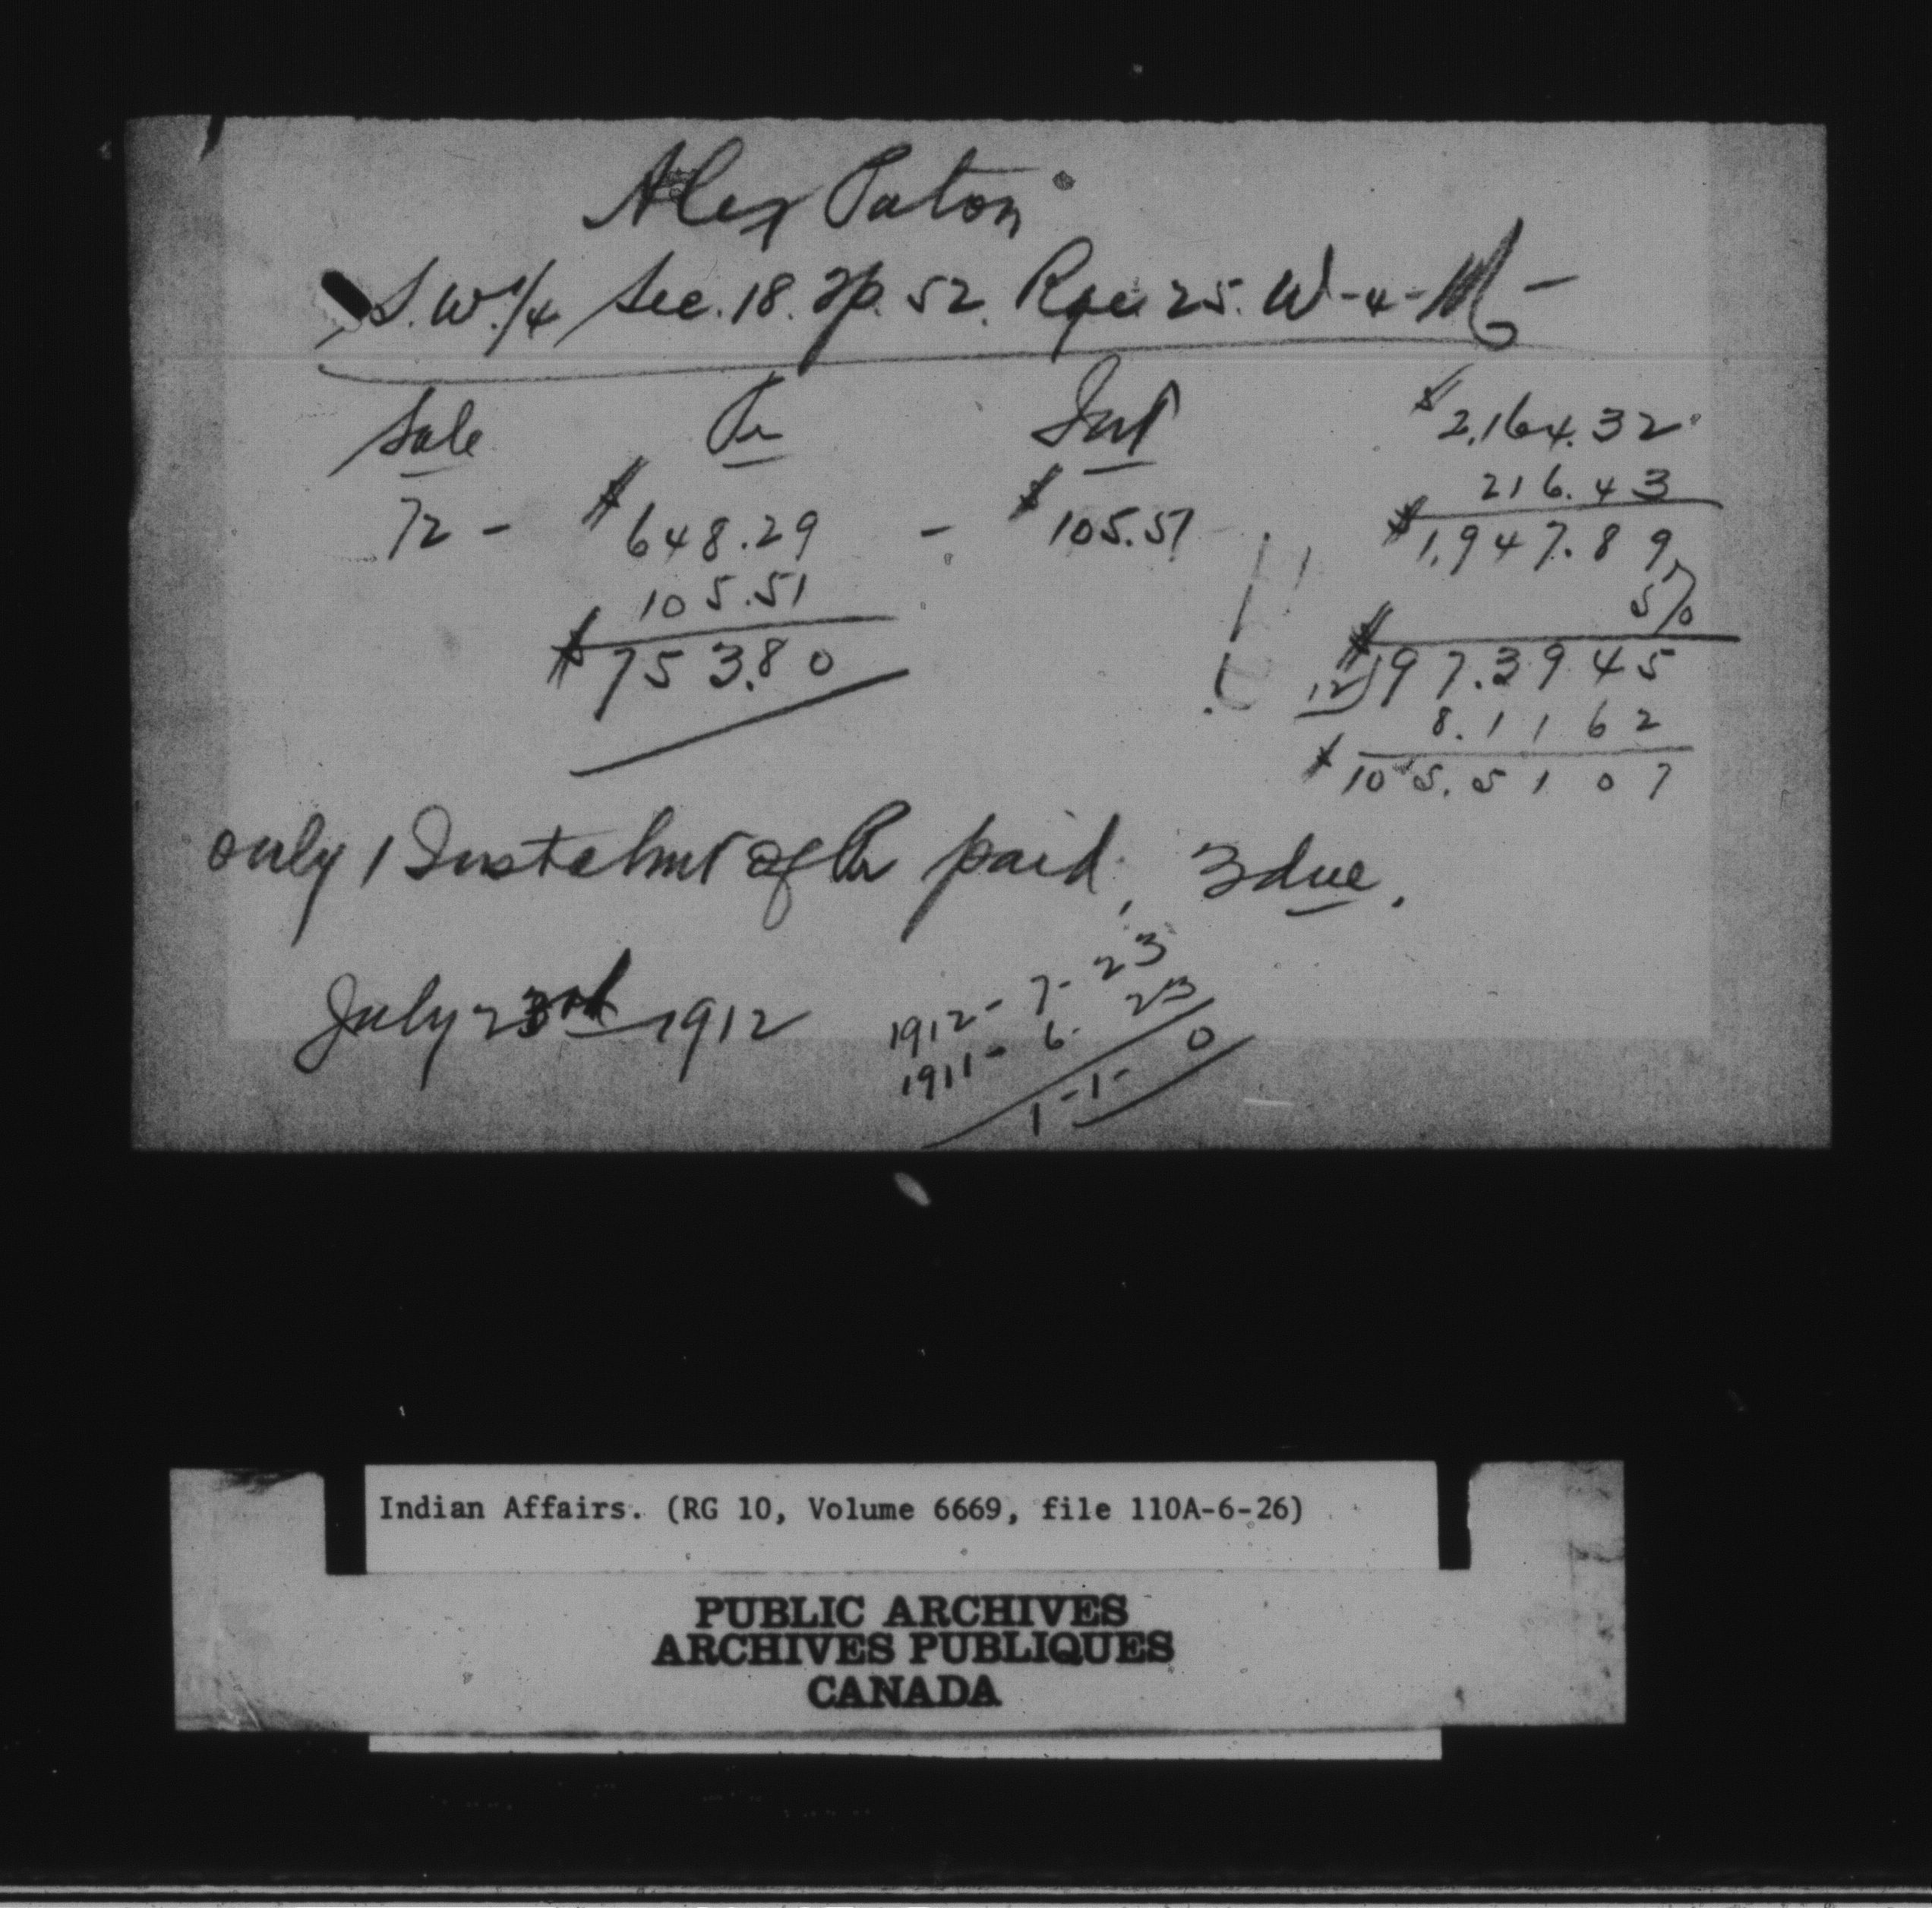 Alex Paton
S.W. 1/4 Sec. 18. Tp. 52. Rge 25. W-4-M-
Sale Pr Int
72 - $648.29 - $105.51
105.51
$753.80
$2,164.32
216.43
$1,947.89
5%
$
12)97.3945
8.1162
$105.5107
only 1 Instalmt of Pr paid, 3 due.
July 23rd 1912
1912 - 7 - 23
1911 - 6 - 23
1 - 1 - 0
Indian Affairs. (RG 10, Volume 6669, file 110A-6-26)
PUBLIC ARCHIVES
ARCHIVES PUBLIQUES
CANADA